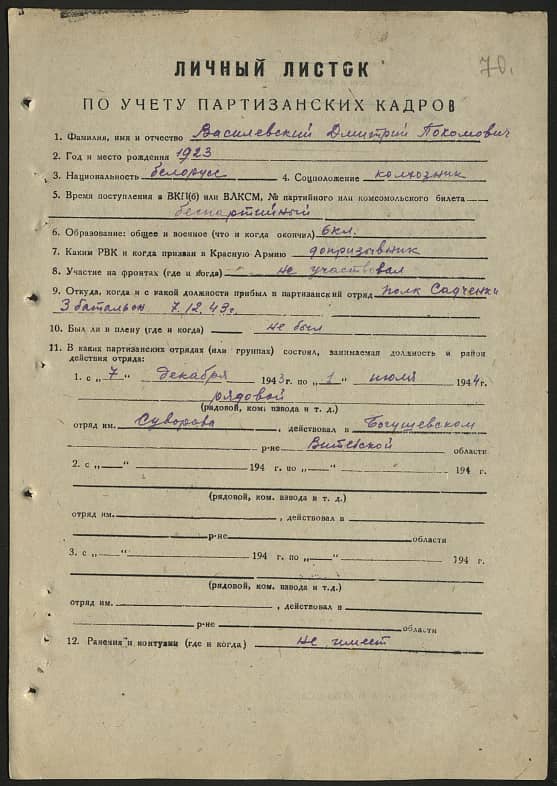 70.
ЛИЧНЫЙ ЛИСТОК
ПО УЧЕТУ ПАРТИЗАНСКИХ КАДРОВ
1. Фамилия, имя и отчество Василевский Дмитрий Похомович
2. Год и место рождения 1923
3. Национальность белорус 4. Соцположение колхозник
5. Время поступления в ВКП(б) или ВЛКСМ, № партийного или комсомольского билета
беспартийный
6. Образование: общее и военное (что и когда окончил) 6 кл.
7. Каким РВК и когда призван в Красную Армию допризывник
8. Участие на фронтах (где и когда) не участвовал
9. Откуда, когда и с какой должности прибыл в партизанский отряд полк Садченки
3 батальон 7.12.43 г.
10. Был ли в плену (где и когда) не был
11. В каких партизанских отрядах (или группах) состоял, занимаемая должность и район
действия отряда:
1. с „7" декабря 1943 г. по „1" июля 1944 г.
рядовой
(рядовой, ком. взвода и т. д.)
отряд им. Суворова, действовал в Богушевском
р-не Витебской области
2. с „ " 194 г. по „ " 194 г.
(рядовой, ком. взвода и т. д.)
отряд им. , действовал в
р-не области
3. с „ " 194 г. по „ " 194 г.
(рядовой, ком. взвода и т.д.)
отряд им. , действовал в
р-не области
12. Ранения и контузии (где и когда) не имеет